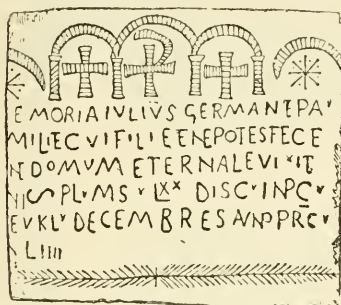 EMORIA IVLIVS GERMANE PA
MILITE CVI FILI E ENEPOTES FECE
NDOMVM ETERNALE VI XIT
NIS PLVMS V LXX DISC V IN PC V
EV KL V DECEMBRES AN P PR C V
LIIII